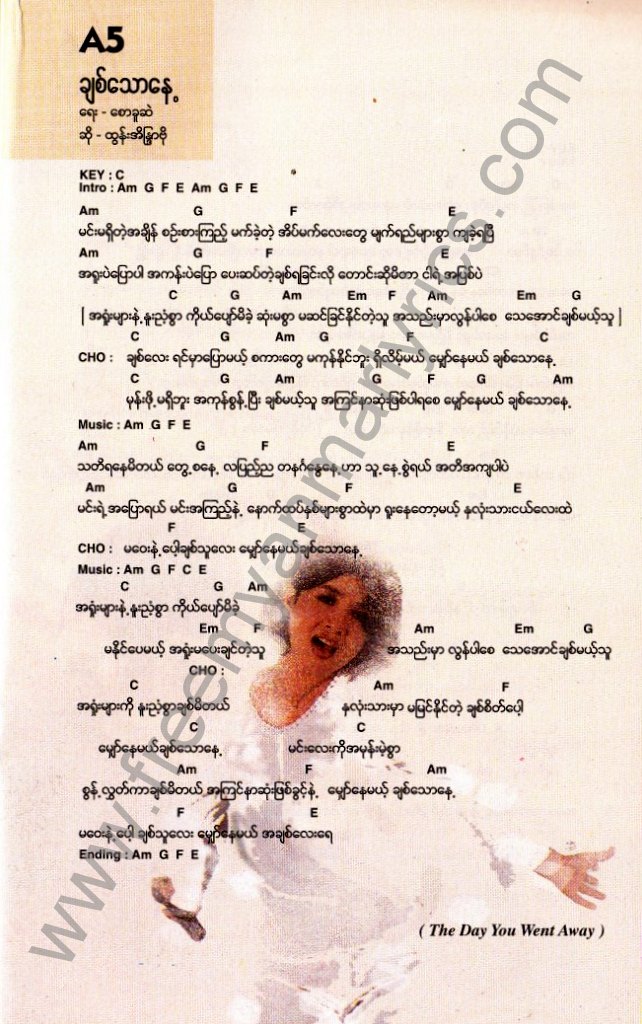 A5
ချစ်သောနေ့
ရေး - စောခူဆဲ
ဆို - ထွန်းအိန္ဒြာဗို
KEY : C
Intro : Am G F E Am G F E
Am G F E
မင်းမရှိတဲ့အချိန် စဉ်းစားကြည့် မက်ခဲ့တဲ့ အိပ်မက်လေးတွေ မျက်ရည်များစွာ ကျခဲ့ရပြီ
Am G F E
အရူးပဲပြောပါ အကန်းပဲပြော ပေးဆပ်တဲ့ချစ်ရခြင်းလို့ တောင်းဆိုမိတာ ငါရဲ့အပြစ်ပဲ
C G Am Em F Am Em G
[ အရှုံးများနဲ့ နူးညံ့စွာ ကိုယ်ပျော်မိခဲ့ ဆုံးမစွာ မဆင်ခြင်နိုင်တဲ့သူ အသည်းမှာလွန်ပါစေ သေအောင်ချစ်မယ့်သူ ]
C G Am G F C
CHO : ချစ်လေး ရင်မှာပြောမယ့် စကားတွေ မကုန်နိုင်ဘူး ရှိလိမ့်မယ် မျှော်နေမယ် ချစ်သောနေ့
C G Am G F G Am
မုန်းဖို့ မရှိဘူး အကုန်စွန့်ပြီး ချစ်မယ့်သူ အကြင်နာဆုံးဖြစ်ပါရစေ မျှော်နေမယ် ချစ်သောနေ့
Music : Am G F E
Am G F E
သတိရနေမိတယ် တွေ့စနေ့ လပြည့်ည တနင်္ဂနွေနေ့ဟာ သူ့နေ့စွဲရယ် အတိအကျပါပဲ
Am G F E
မင်းရဲ့အပြောရယ် မင်းအကြည့်နဲ့ နောက်ထပ်နှစ်များစွာထဲမှာ ရူးနေတော့မယ့် နှလုံးသားငယ်လေးထဲ
F E
CHO : မဝေးနဲ့ပေါ့ချစ်သူလေး မျှော်နေမယ်ချစ်သောနေ့
Music : Am G F C E
C G Am
အရှုံးများနဲ့ နူးညံ့စွာ ကိုယ်ပျော်မိခဲ့
Em F Am Em G
မနိုင်ပေမယ့် အရှုံးမပေးချင်တဲ့သူ အသည်းမှာ လွန်ပါစေ သေအောင်ချစ်မယ့်သူ
CHO :
C Am F
အရှုံးများကို နူးညံ့စွာချစ်မိတယ် နှလုံးသားမှာ မမြင်နိုင်တဲ့ ချစ်စိတ်ပေါ့
C C
မျှော်နေမယ်ချစ်သောနေ့ မင်းလေးကိုအမုန်းမဲ့စွာ
Am F Am
စွန့်လွှတ်ကာချစ်မိတယ် အကြင်နာဆုံးဖြစ်ခွင့်နဲ့ မျှော်နေမယ့် ချစ်သောနေ့
F E
မဝေးနဲ့ပေါ့ ချစ်သူလေး မျှော်နေမယ် အချစ်လေးရေ
Ending : Am G F E
( The Day You Went Away )
www.freemyanmarlyrics.com